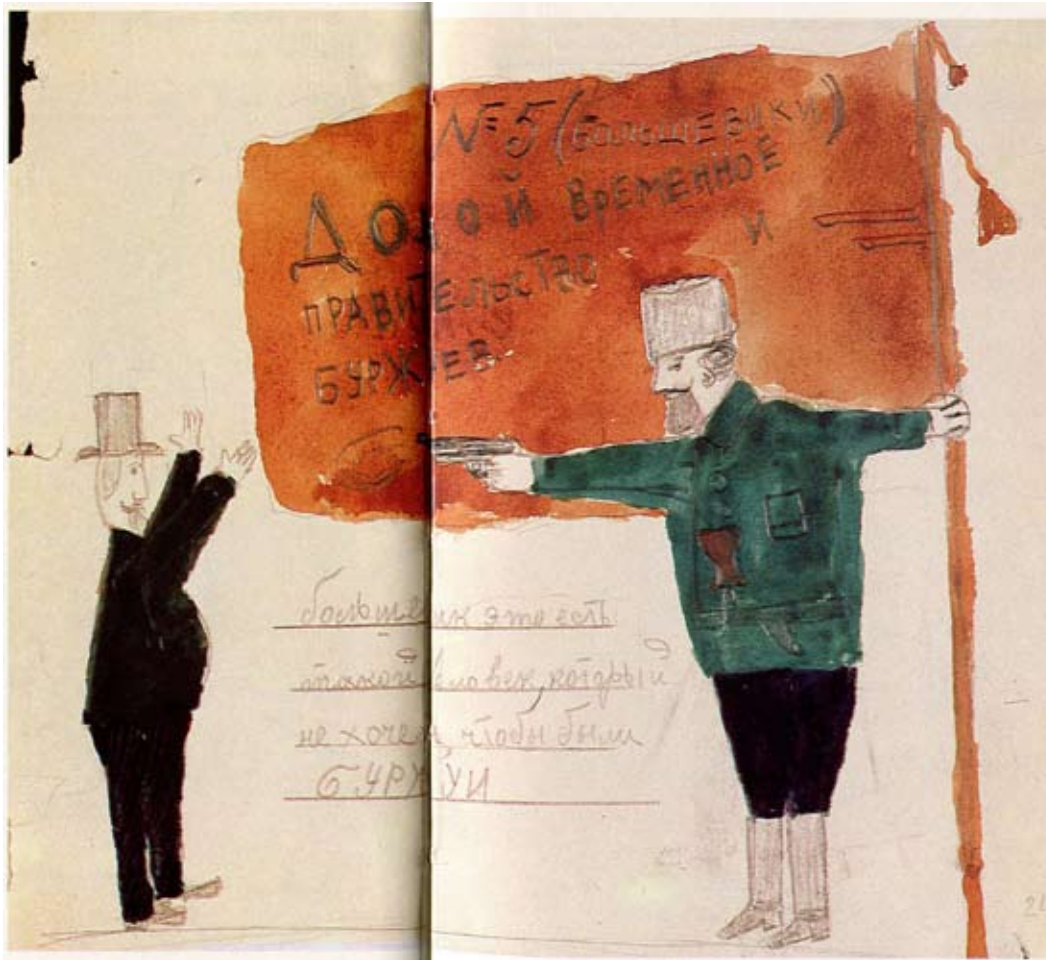 № 5 (большевики)
Долой временное
правительство и
буржуев
большевик это есть
такой человек, который
не хочет, чтобы были
БУРЖУИ